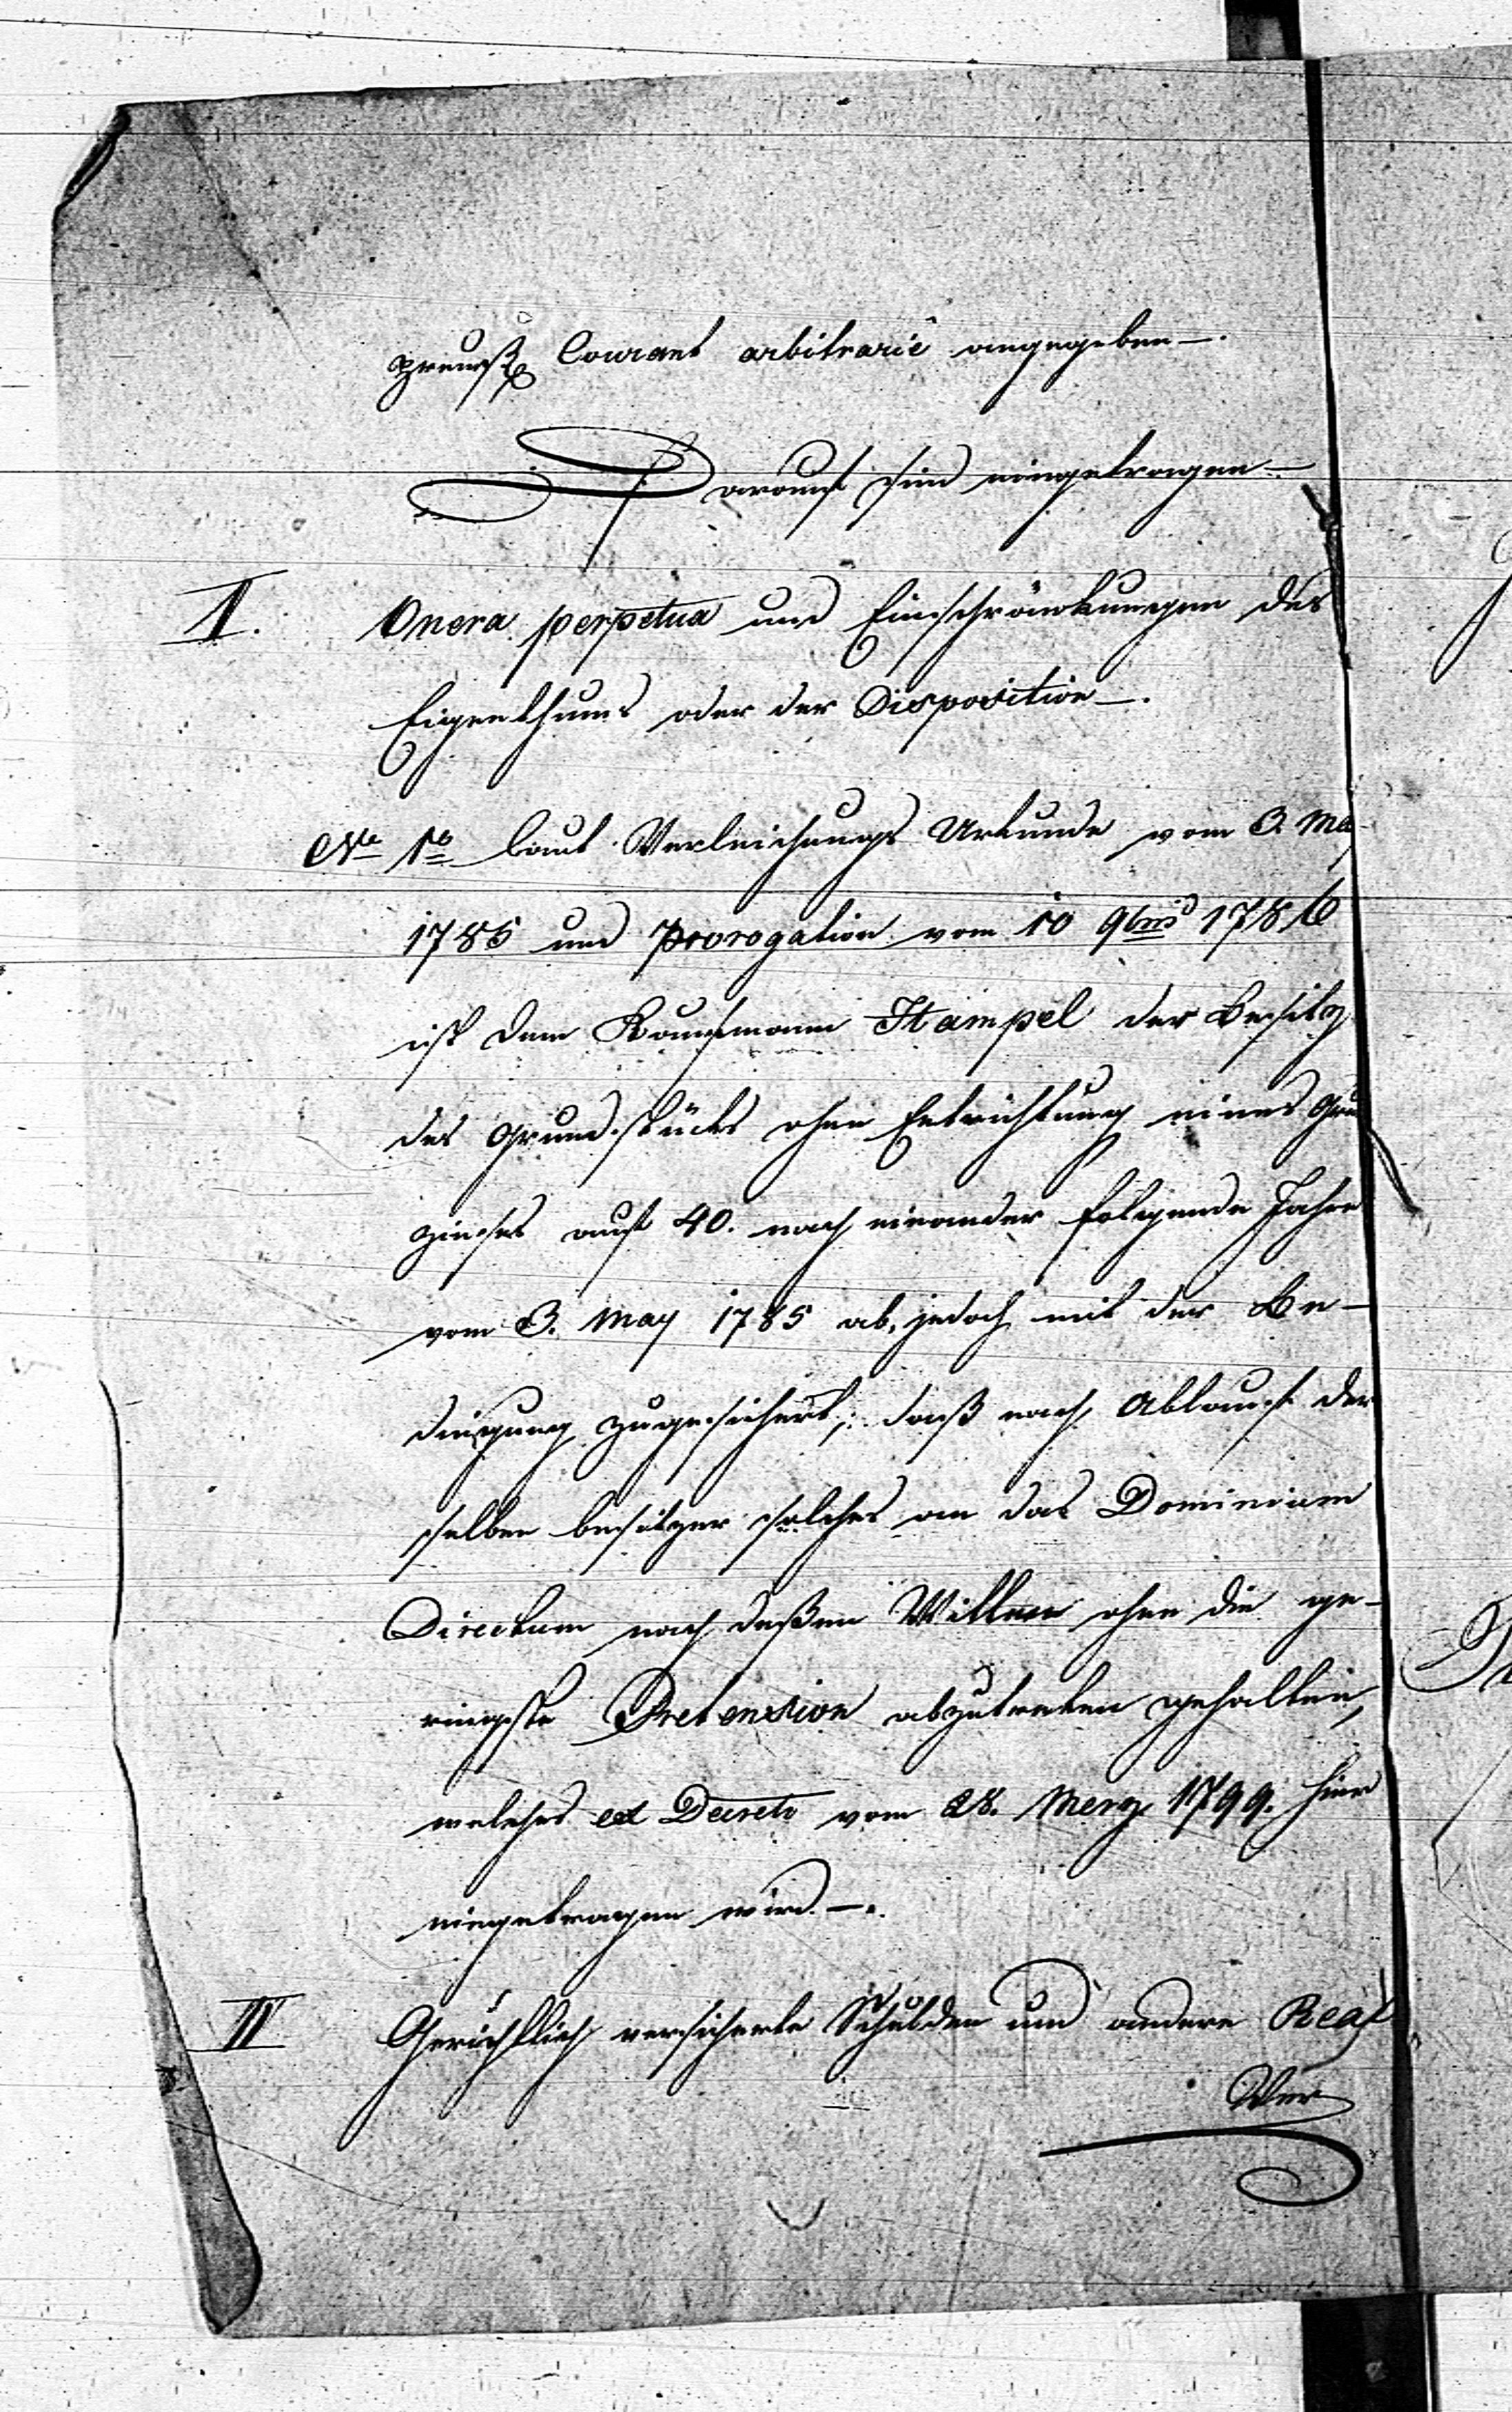 preuß Courant arbitrarie angegeben —.
Darauf sind eingetragen —
I. Onera perpetua und Einschränkungen des
Eigenthums oder der Disposition —.
No 1o laut Verleihungs Urkunde vom 3. May
1785 und Prorogation vom 10 9bris 1786
ist dem Kaufmann Stampel der Besitz
des Grundstücks ohne Entrichtung eines Grund
zinses auf 40. nach einander folgende Jahre
vom 3. May 1785 ab, jedoch mit der Be-
dingung zugesichert, daß nach Ablauf der
selben besitzer solches an das Dominium
Directum nach deßen Willen ohne die ge-
ringste Pretension abzutreten gehalten,
welches ex Decreto vom 28. Merz 1799. hier
eingetragen wird. —.
II Gerichtlich versicherte Schulden und andere Real
Ver